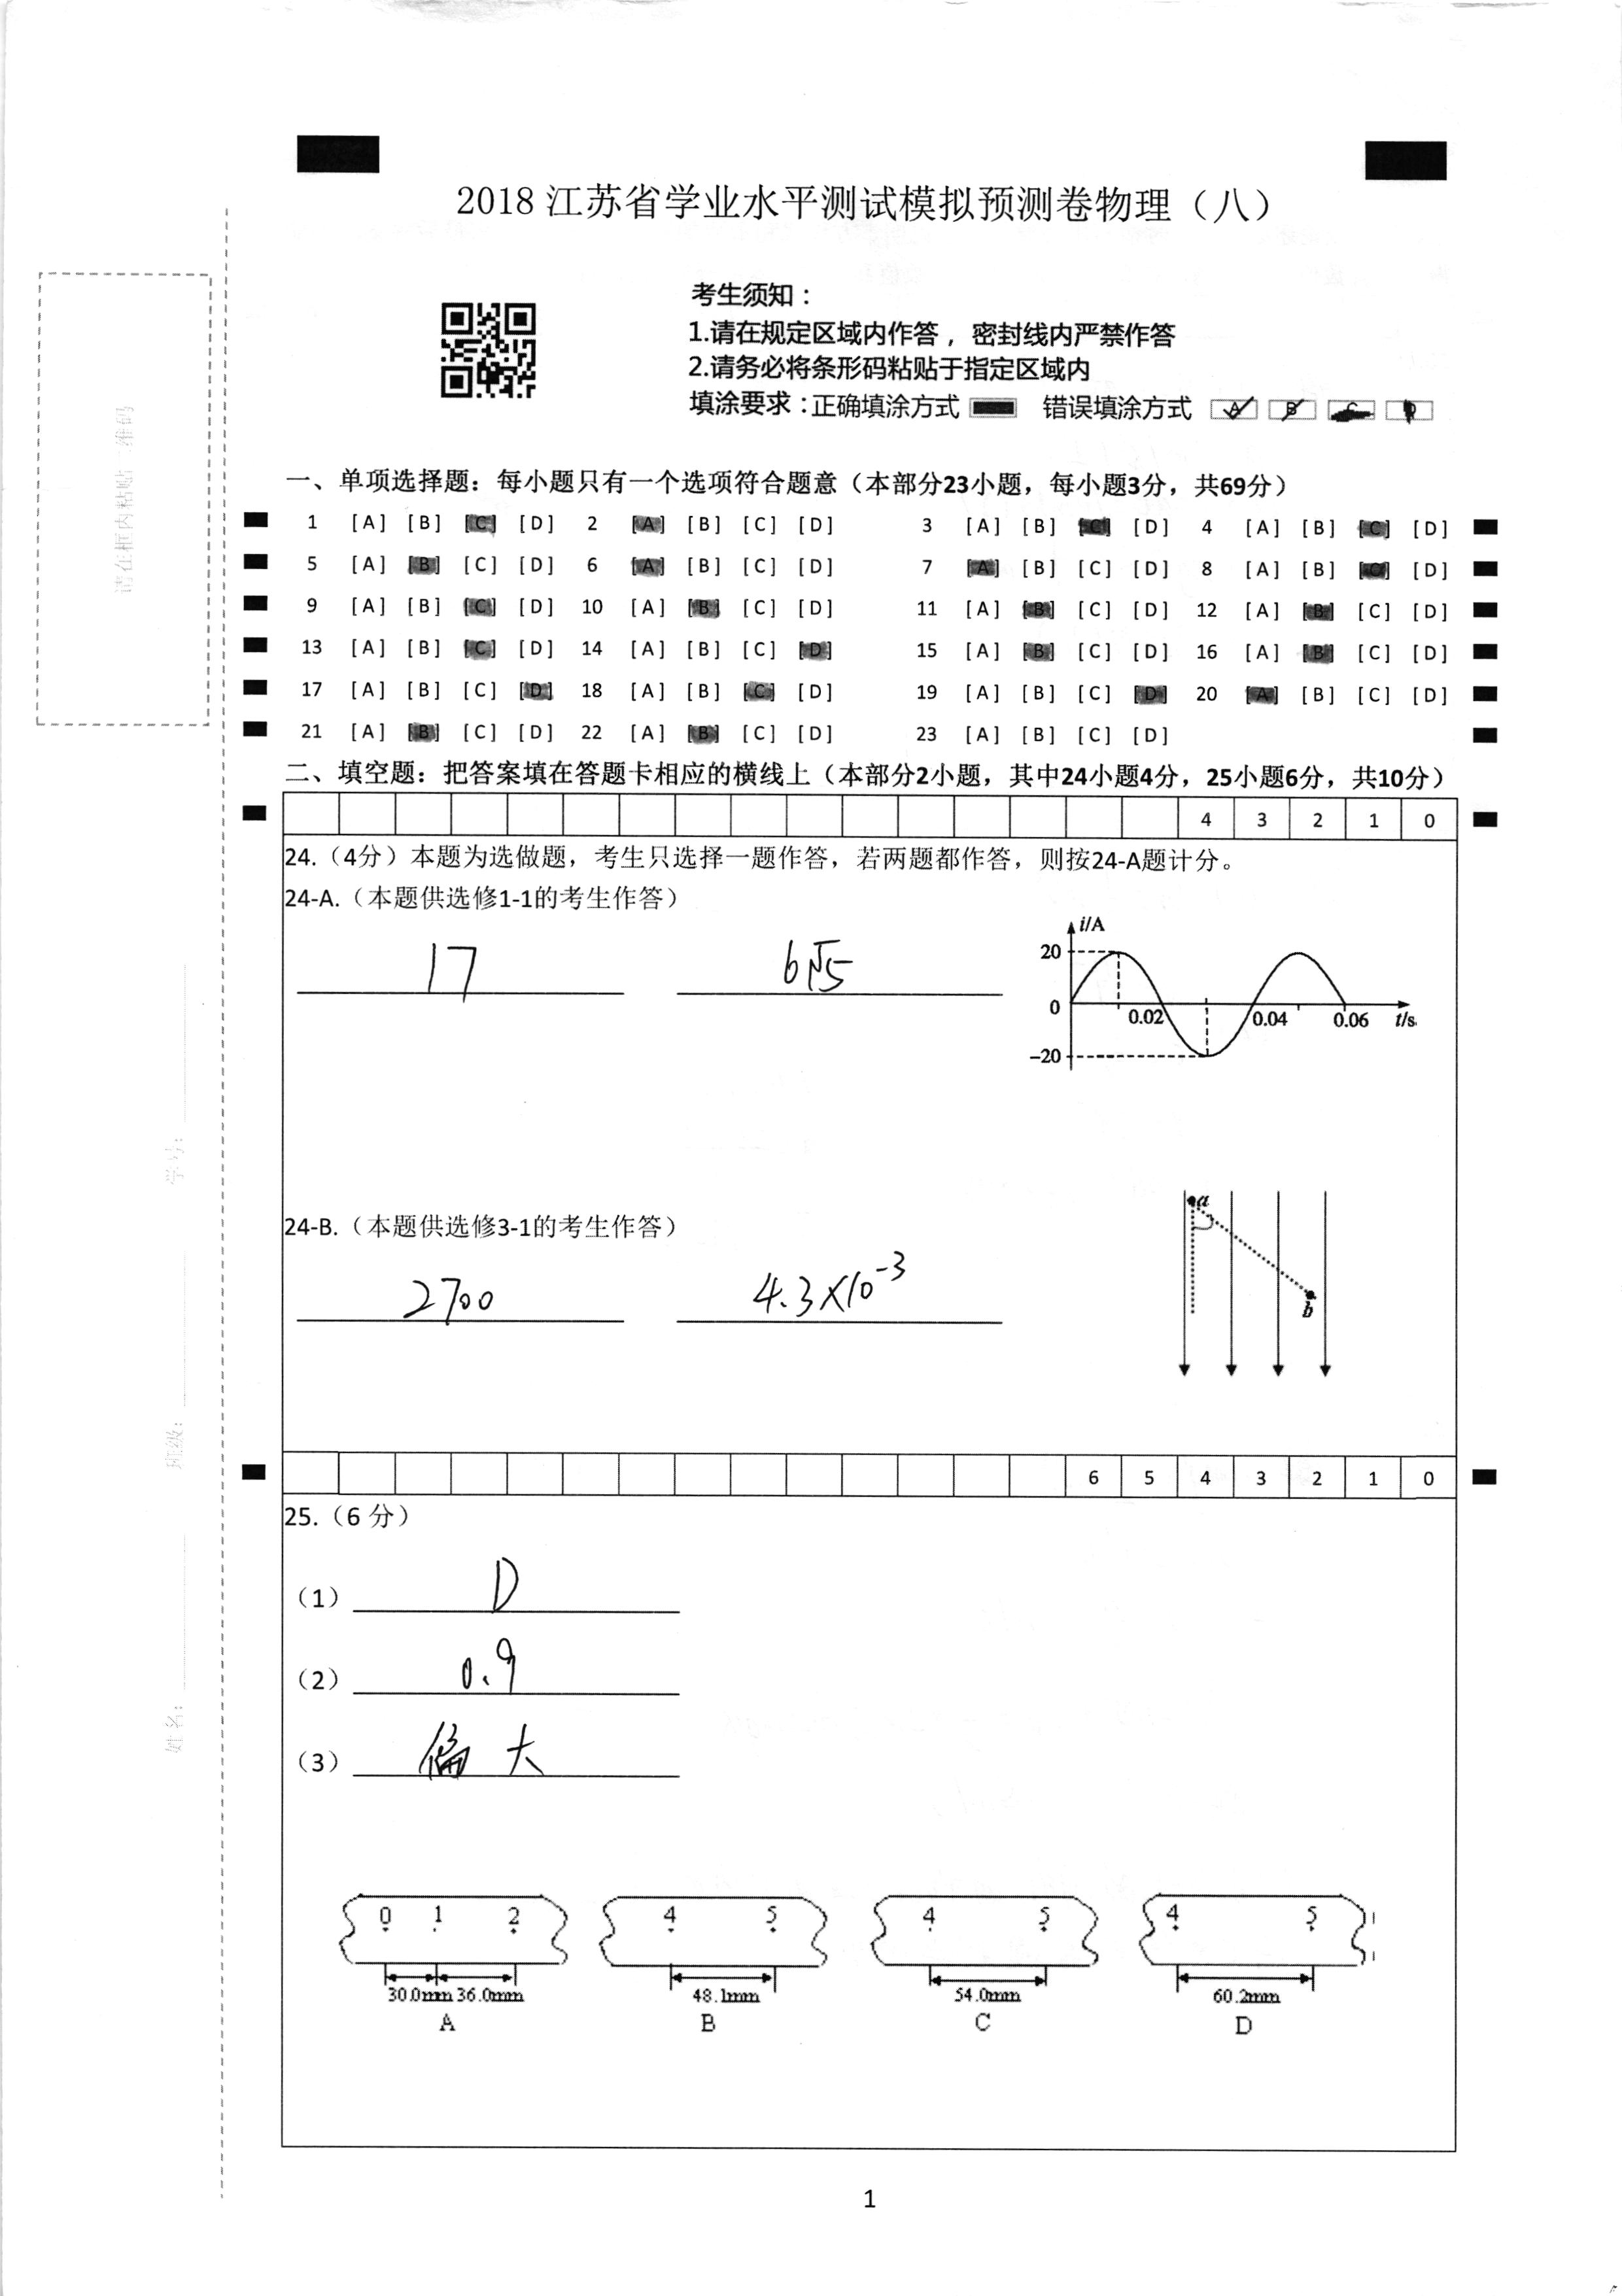 2018江苏省学业水平测试模拟预测卷物理（八）
考生须知：
1.请在规定区域内作答，密封线内严禁作答
2.请务必将条形码粘贴于指定区域内
填涂要求：正确填涂方式 错误填涂方式 A B C D
请在框内粘贴二维码
学号：
班级：
姓名：
一、单项选择题：每小题只有一个选项符合题意（本部分23小题，每小题3分，共69分）
1 [A] [B] [C] [D] 2 [A] [B] [C] [D] 3 [A] [B] [C] [D] 4 [A] [B] [C] [D]
5 [A] [B] [C] [D] 6 [A] [B] [C] [D] 7 [A] [B] [C] [D] 8 [A] [B] [C] [D]
9 [A] [B] [C] [D] 10 [A] [B] [C] [D] 11 [A] [B] [C] [D] 12 [A] [B] [C] [D]
13 [A] [B] [C] [D] 14 [A] [B] [C] [D] 15 [A] [B] [C] [D] 16 [A] [B] [C] [D]
17 [A] [B] [C] [D] 18 [A] [B] [C] [D] 19 [A] [B] [C] [D] 20 [A] [B] [C] [D]
21 [A] [B] [C] [D] 22 [A] [B] [C] [D] 23 [A] [B] [C] [D]
二、填空题：把答案填在答题卡相应的横线上（本部分2小题，其中24小题4分，25小题6分，共10分）
4 3 2 1 0
24.（4分）本题为选做题，考生只选择一题作答，若两题都作答，则按24-A题计分。
24-A.（本题供选修1-1的考生作答）
17 6√5
i/A
20
0 0.02 0.04 0.06 t/s
-20
24-B.（本题供选修3-1的考生作答）
2700 4.3×10⁻³
a
b
6 5 4 3 2 1 0
25.（6 分）
（1） D
（2） 0.9
（3） 偏大
0 1 2 4 5 4 5 4 5
30.0mm 36.0mm 48.1mm 54.0mm 60.2mm
A B C D
1